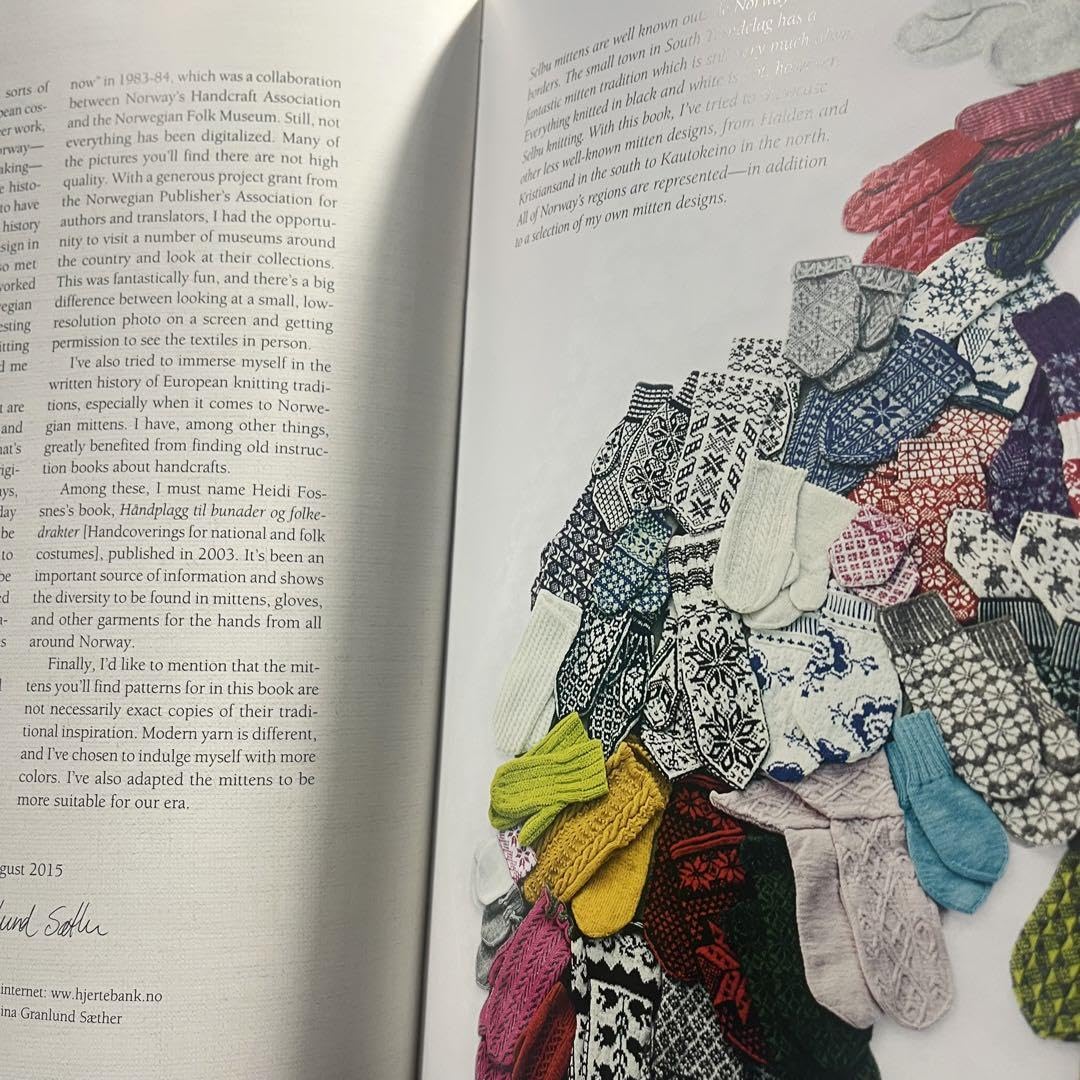 sorts of
er work,
rway—
aking—
e histo-
to have
history
sign in
so met
worked
egian
esting
itting
d me
t are
and
hat's
igi-
ays,
lay
be
to
be
ed
s
now" in 1983-84, which was a collaboration
between Norway's Handcraft Association
and the Norwegian Folk Museum. Still, not
everything has been digitalized. Many of
the pictures you'll find there are not high
quality. With a generous project grant from
the Norwegian Publisher's Association for
authors and translators, I had the opportu-
nity to visit a number of museums around
the country and look at their collections.
This was fantastically fun, and there's a big
difference between looking at a small, low-
resolution photo on a screen and getting
permission to see the textiles in person.
I've also tried to immerse myself in the
written history of European knitting tradi-
tions, especially when it comes to Norwe-
gian mittens. I have, among other things,
greatly benefited from finding old instruc-
tion books about handcrafts.
Among these, I must name Heidi Fos-
snes's book, Håndplagg til bunader og folke-
drakter [Handcoverings for national and folk
costumes], published in 2003. It's been an
important source of information and shows
the diversity to be found in mittens, gloves,
and other garments for the hands from all
around Norway.
Finally, I'd like to mention that the mit-
tens you'll find patterns for in this book are
not necessarily exact copies of their tradi-
tional inspiration. Modern yarn is different,
and I've chosen to indulge myself with more
colors. I've also adapted the mittens to be
more suitable for our era.
gust 2015
lund Sæther
internet: ww.hjertebank.no
ina Granlund Sæther
Selbu mittens are well known Norway
borders. The small town in South has a
fantastic mitten tradition which is very much
Everything knitted in black and white is however,
Selbu knitting. With this book, I've tried to
other less well-known mitten designs, from Halden and
Kristiansand in the south to Kautokeino in the north.
All of Norway's regions are represented—in addition
to a selection of my own mitten designs.